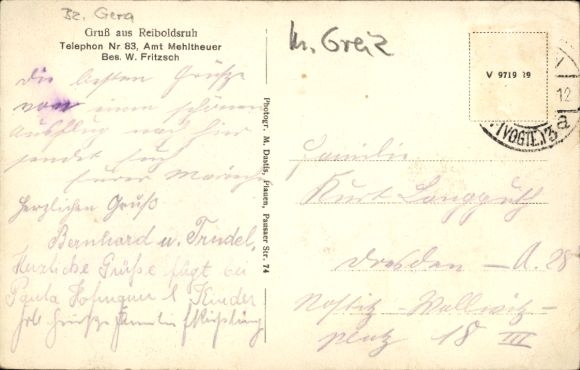 Bz. Gera
Gruß aus Reiboldsruh
Telephon Nr 83, Amt Mehltheuer
Bes. W. Fritzsch
Kr. Greiz
V 9719 19
12
(VOGTL.) 3 a
Die besten Grüße
von einem schönen
Ausflug nach hier
sendet Euch
Eurer
Herzlichen Gruß
Bernhard u. Trudel,
Herzliche Grüße fügt bei
Paula Hofmann & Kinder
Familie
Photogr. M. Dastis, Plauen, Pausaer Str. 74
Familie
Kurt Langguth
Dresden - A. 28
Nostitz-Wallwitz-
platz 18 III